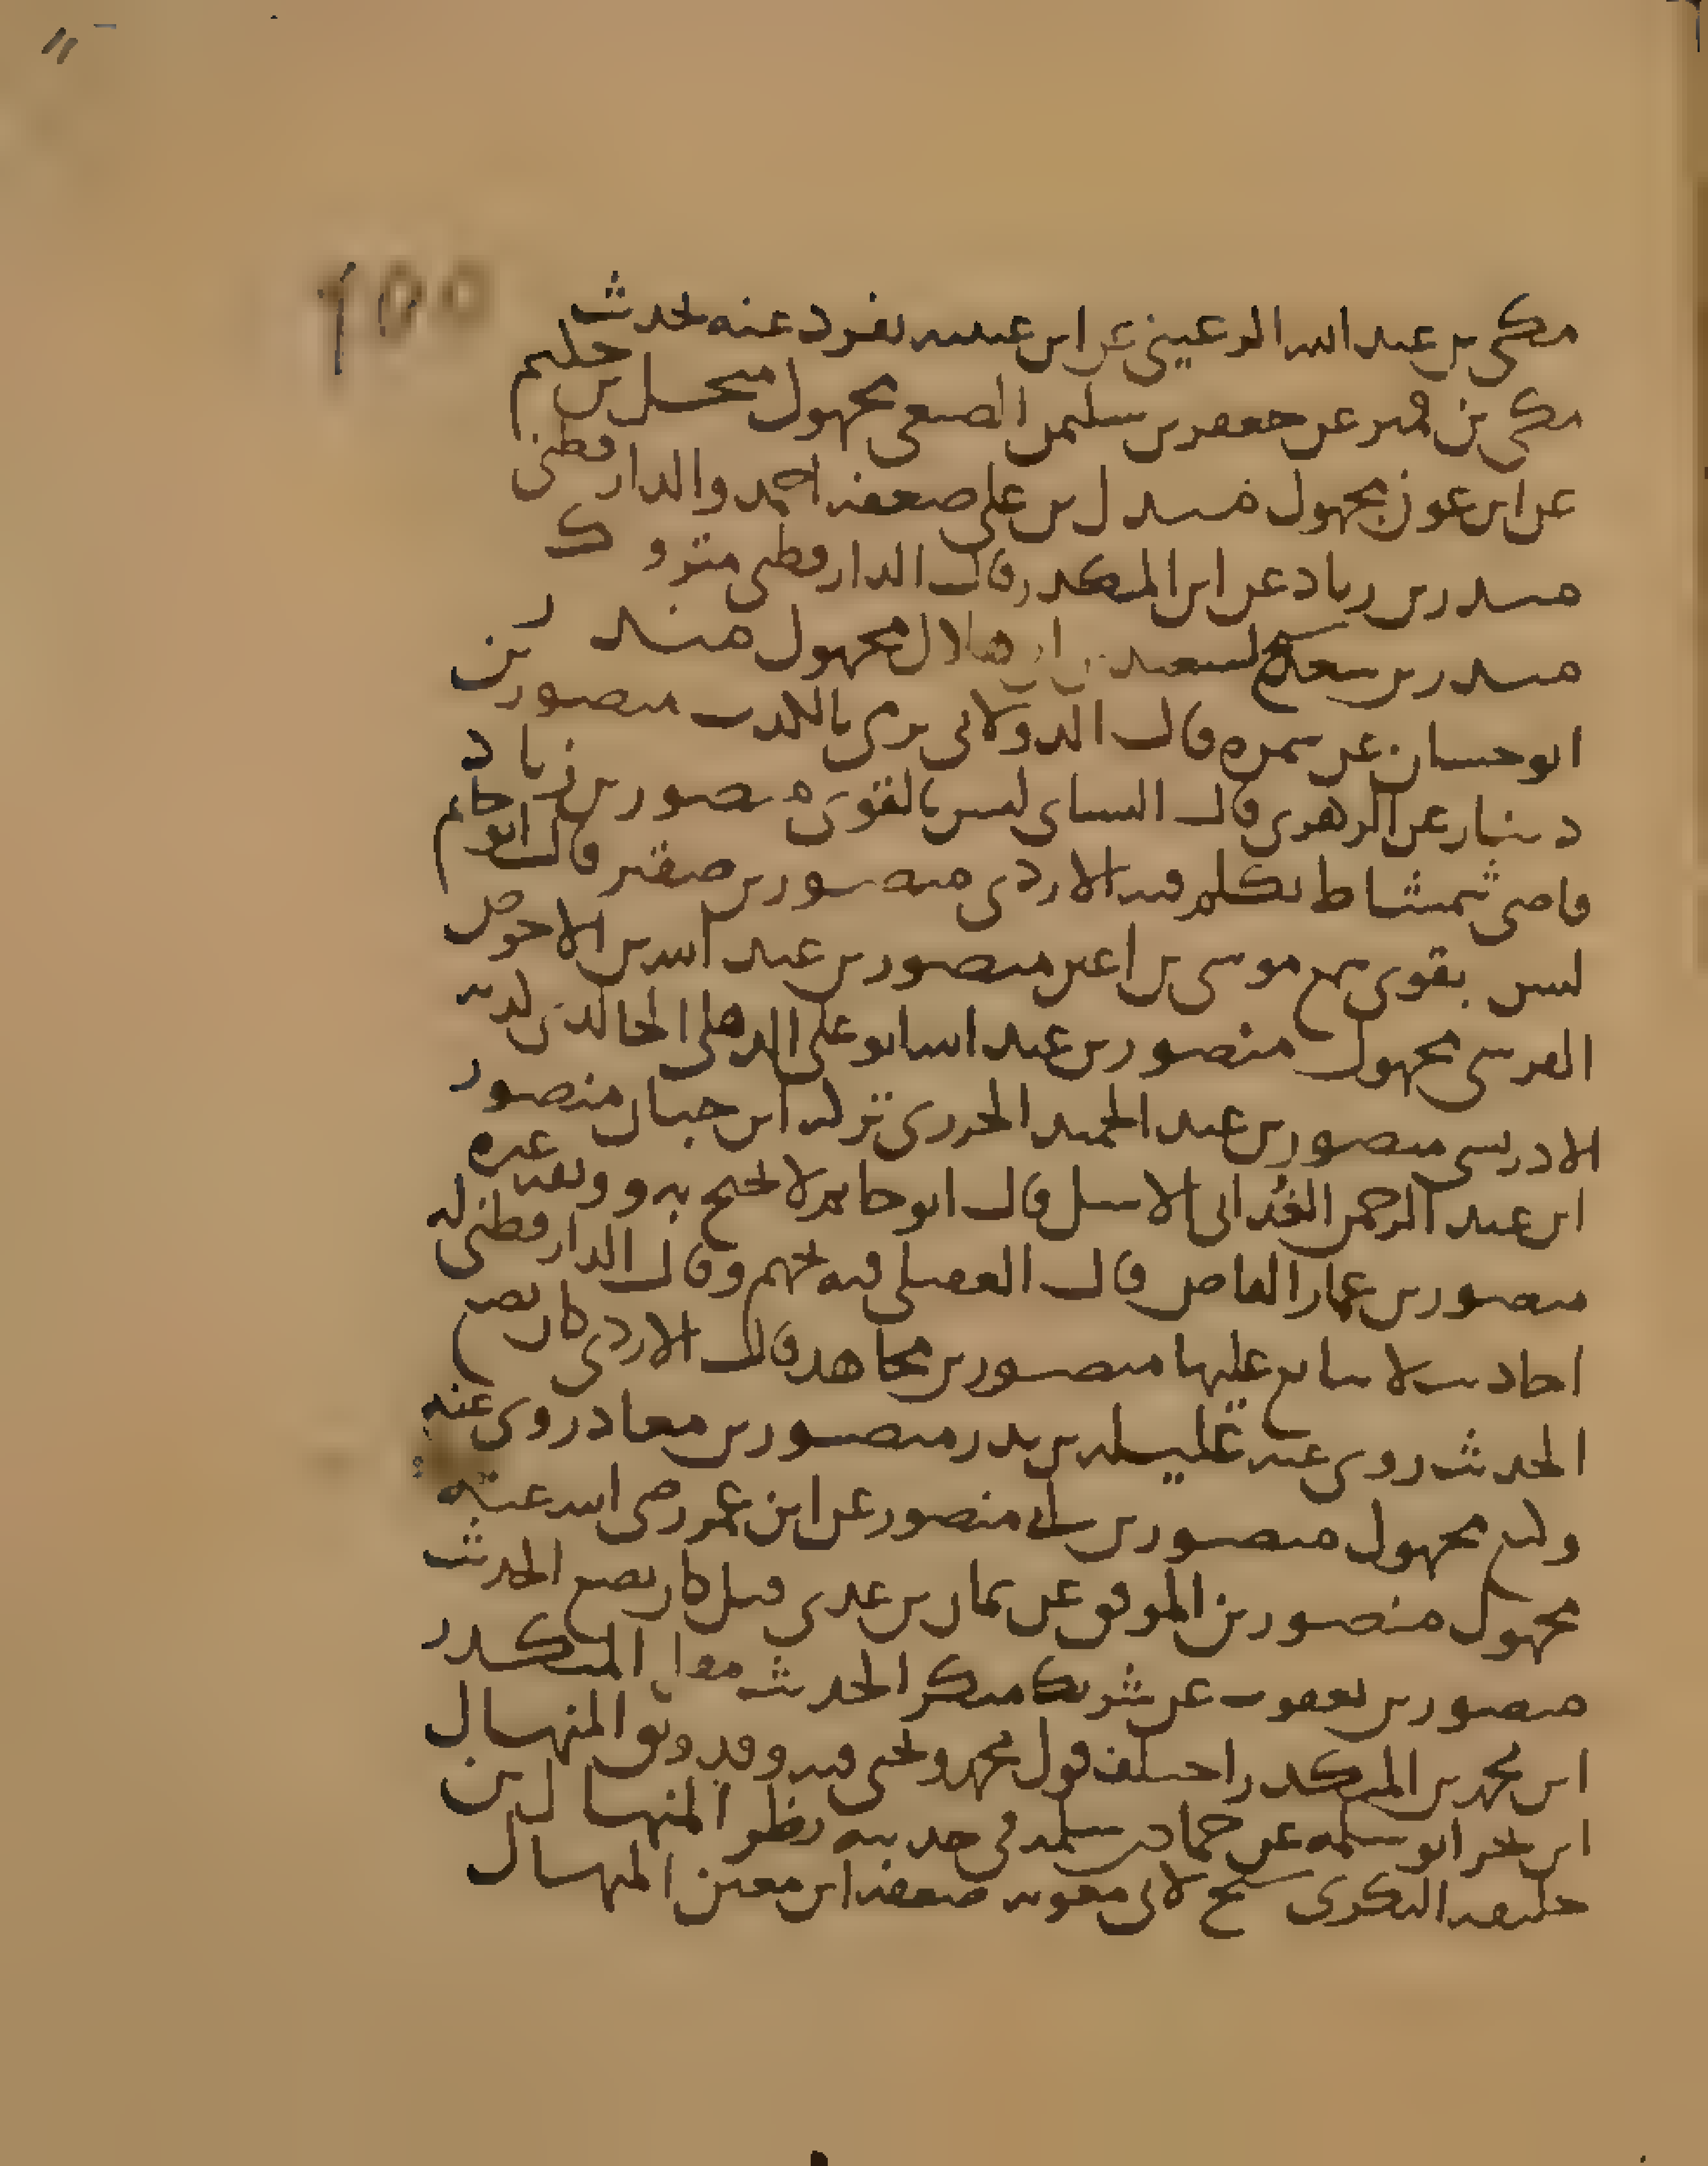 ١٥٥
مكي بن عبد الله الرعيني عن ابن عيينه تفرد عنه بحديث
مكي بن قمير عن جعفر بن سليمن الضبعي مجهول منخل بن حكيم
عن ابن عون مجهول مندل بن علي ضعفه احمد والدارقطني
منذر بن زياد عن ابن المنكدر قال الدارقطني متروك
منذر بن سعد شيخ لسعيد بن ابي هلال مجهول منذر
ابو حسان عن سمره قال الدولابي يرمى بالكذب منصور بن
دينار عن الزهري قال النساي ليس بالقوي منصور بن زياد
قاضي شمشاط تكلم فيه الازدي منصور بن صقير قال ابو حاتم
ليس بقوي سمع موسى بن اعين منصور بن عبد الله بن الاحوص
القرشي مجهول منصور بن عبد الله ابو علي الذهلي الخالدي كذبه
الادريسي منصور بن عبد الحميد الجزري تركه ابن حبان منصور
ابن عبد الرحمن الغداني الاشل قال ابو حاتم لا يحتج به ووثقه غيره
منصور بن عمار القاص قال العقيلي فيه تجهم وقال الدارقطني له
احاديث لا يتابع عليها منصور بن مجاهد قال الازدي كان يضع
الحديث روى عنه عليله بن بدر منصور بن معاذ روى عنه
ولده مجهول منصور بن ابي منصور عن ابن عمر رضي الله عنه
مجهول منصور بن الموفق عن يمان بن عدي قيل كان يضع الحديث
منصور بن يعقوب عن شريك منكر الحديث المنكدر
ابن محمد بن المنكدر اختلف قول محمد ويحيى فيه وقد وثق المنهال
ابن بحر ابو سلمه عن حماد بن سلمه في حديثه نظر المنهال بن
خليفه البكري شيخ لابي معويه ضعفه ابن معين المنهال